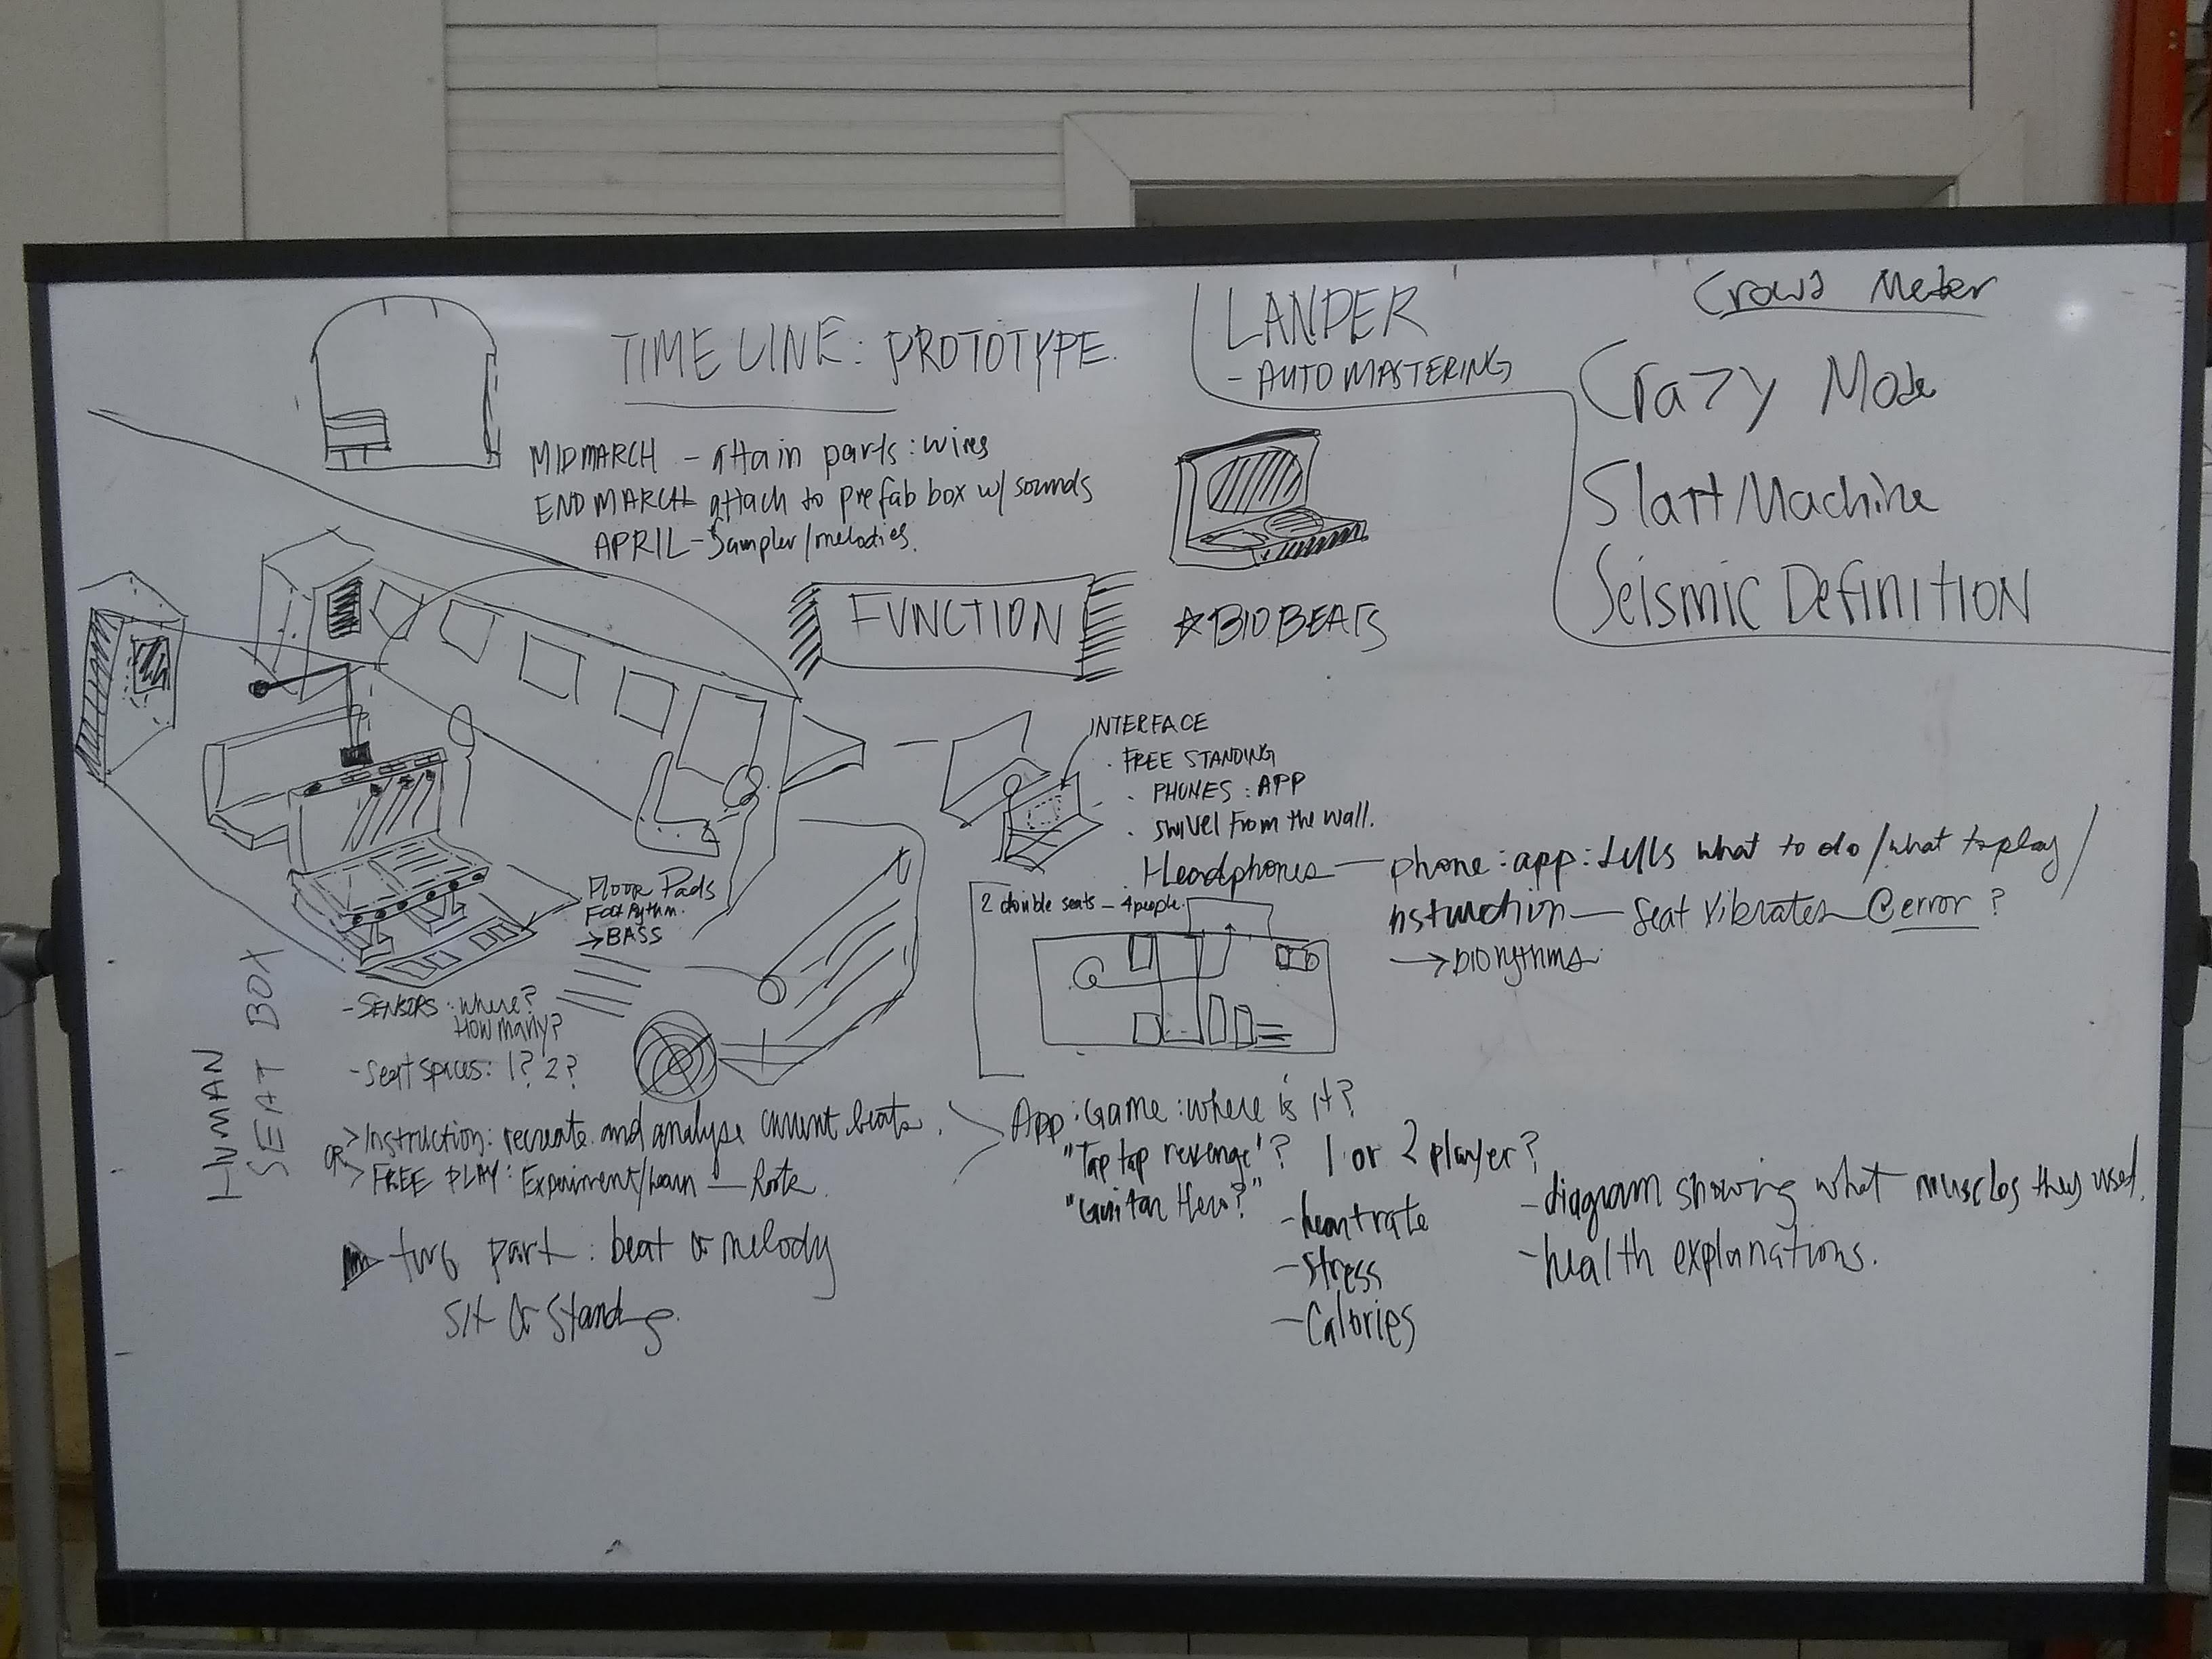 TIMELINE: PROTOTYPE.
MIDMARCH - attain parts: wires
END MARCH- attach to prefab box w/ sounds
APRIL - Sampler/melodies.
LANDER
- AUTO MASTERING
Crowd Meter
Crazy Mode
Slatt/Machine
Seismic Definition
FUNCTION
☆BIOBEATS
INTERFACE
· FREE STANDING
· PHONES : APP
· swivel from the wall.
· Headphones — phone : app : tells what to do / what to play /
instruction — seat vibrates @ error ?
→ biorythms
2 double seats - 4 people.
Floor Pads
Foot Rythm.
→ BASS
HUMAN
SEAT BOX
- SENSORS : where?
How many?
- Seat spaces: 1? 2?
> Instruction: recreate and analyse current beats.
OR
> FREE PLAY: Experiment/Learn —
- two part : beat or melody
sit or standing.
App : Game : where is it?
"Tap tap revenge"? 1 or 2 player?
"Guitar Hero?"
- heartrate
- stress
- Calories
- diagram showing what muscles they used.
- health explanations.